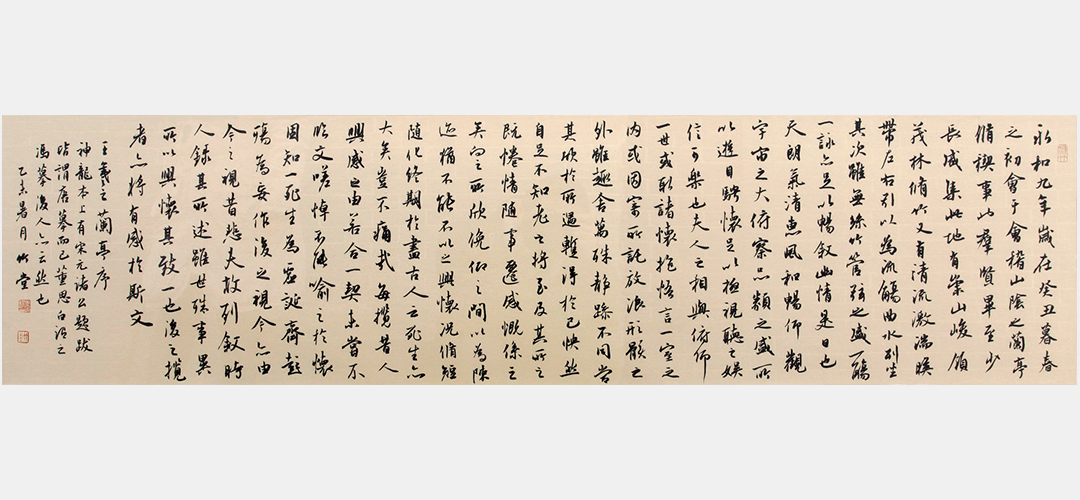 永和九年歲在癸丑暮春
之初會于會稽山陰之蘭亭
脩禊事也羣賢畢至少
長咸集此地有崇山峻領
茂林脩竹又有清流激湍暎
帶左右引以為流觴曲水列坐
其次雖無絲竹管弦之盛一觴
一詠亦足以暢敘幽情是日也
天朗氣清惠風和暢仰觀
宇宙之大俯察品類之盛所
以遊目騁懷足以極視聽之娛
信可樂也夫人之相與俯仰
一世或取諸懷抱悟言一室之
內或因寄所託放浪形骸之
外雖趣舍萬殊靜躁不同當
其欣於所遇暫得於己快然
自足不知老之將至及其所之
既惓情隨事遷感慨係之
矣向之所欣俛仰之間以為陳
迹猶不能不以之興懷況脩短
隨化終期於盡古人云死生亦
大矣豈不痛哉每攬昔人
興感之由若合一契未嘗不
臨文嗟悼不能喻之於懷
固知一死生為虛誕齊彭
殤為妄作後之視今亦由
今之視昔悲夫故列敘時
人錄其所述雖世殊事異
所以興懷其致一也後之攬
者亦將有感於斯文
王羲之蘭亭序
神龍本上有宋元諸公題跋
皆謂唐摹而已董思白沿之
馮摹後人亦云然也
乙未暑月竹堂